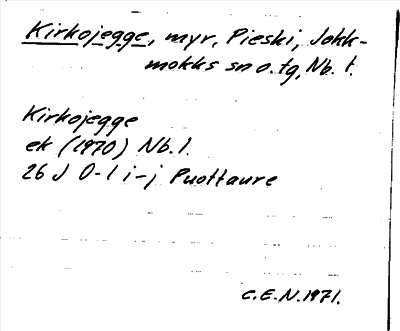 Kirkojegge, myr, Pieski, Jokk-
mokks sn o. tg, Nb. l.
Kirkojegge
ek (1970) Nb. l.
26 J 0-1 i-j Puottaure
C.E.N. 1971.